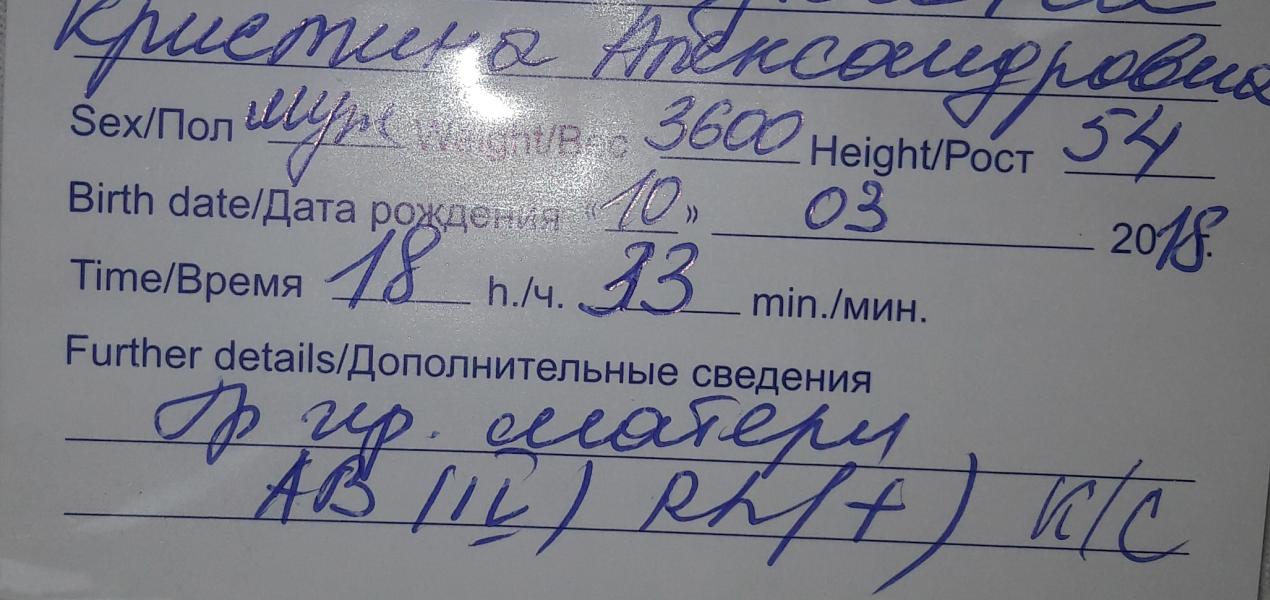 Кристина Александровна
Sex/Пол муж Weight/Вес 3600 Height/Рост 54
Birth date/Дата рождения «10» 03 2018.
Time/Время 18 h./ч. 33 min./мин.
Further details/Дополнительные сведения
Гр кр. матери
AB (IV) Rh(+) К/С